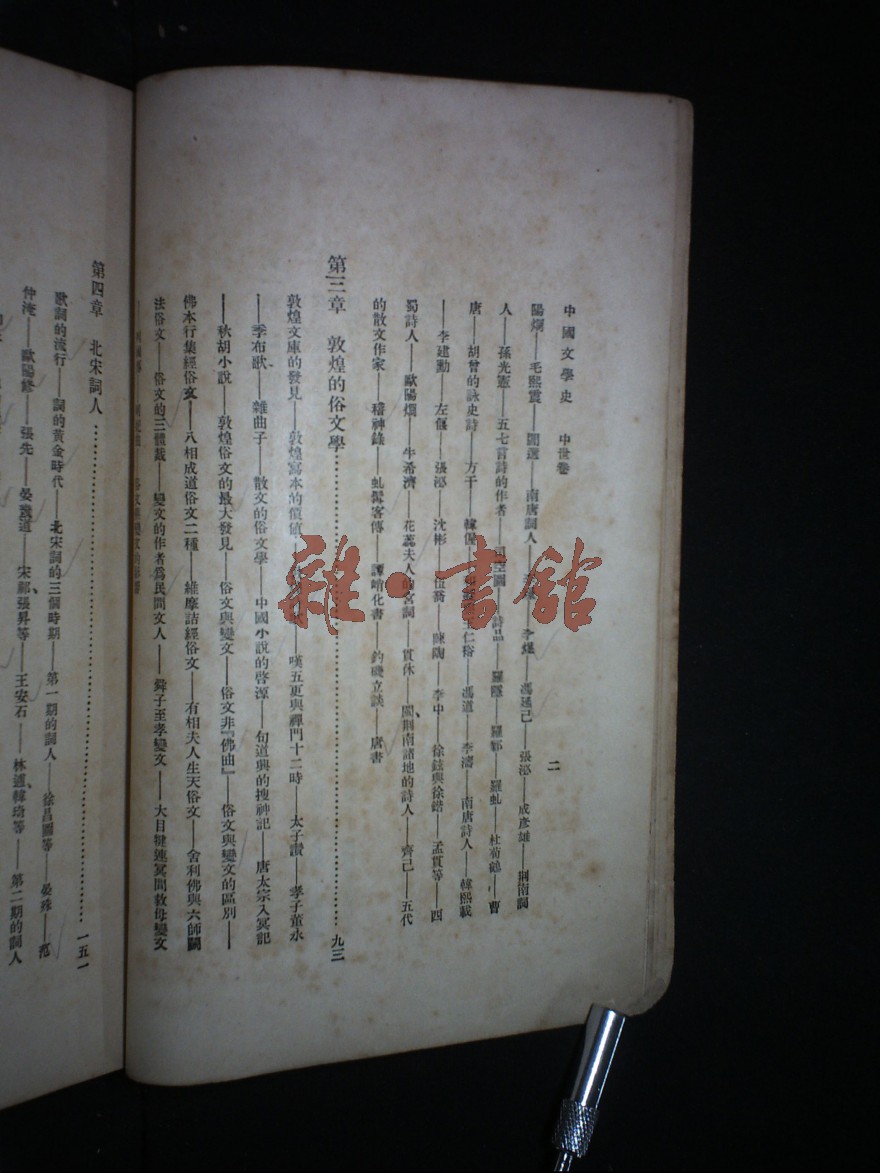 中國文學史　中世卷　二
陽烱——毛熙震——閻選——南唐詞人——李煜——馮延己——張泌——成彥雄——荆南詞
人——孫光憲——五七言詩的作者——司空圖——詩品——羅隱——羅鄴——羅虬——杜荀鶴——曹
唐——胡曾的詠史詩——方干——韓偓——王仁裕——馮道——李濤——南唐詩人——韓熙載
——李建勳——左偃——張泌——沈彬——伍喬——陳陶——李中——徐鉉與徐鍇——孟貫等——四
蜀詩人——歐陽烱——牛希濟——花蕊夫人的宮詞——貫休——閩、荆南諸地的詩人——齊己——五代
的散文作家——稽神錄——虬髯客傳——譚峭化書——釣磯立談——唐書
第三章　敦煌的俗文學……九三
敦煌文庫的發見——敦煌寫本的價値——嘆五更與禪門十二時——太子讚——孝子董永
——季布歌——雜曲子——散文的俗文學——中國小說的啓源——句道興的搜神記——唐太宗入冥記
——秋胡小說——敦煌俗文的最大發見——俗文與變文——俗文非『佛曲』——俗文與變文的區別——
佛本行集經俗文——八相成道俗文二種——維摩詰經俗文——有相夫人生天俗文——舍利佛與六師鬭
法俗文——俗文的三體裁——變文的作者爲民間文人——舜子至孝變文——大目犍連冥間救母變文
第四章　北宋詞人……一五一
歌詞的流行——詞的黃金時代——北宋詞的三個時期——第一期的詞人——徐昌圖等——晏殊——范
仲淹——歐陽修——張先——晏幾道——宋祁、張昇等——王安石——林逋、韓琦等——第二期的詞人
雜·書館